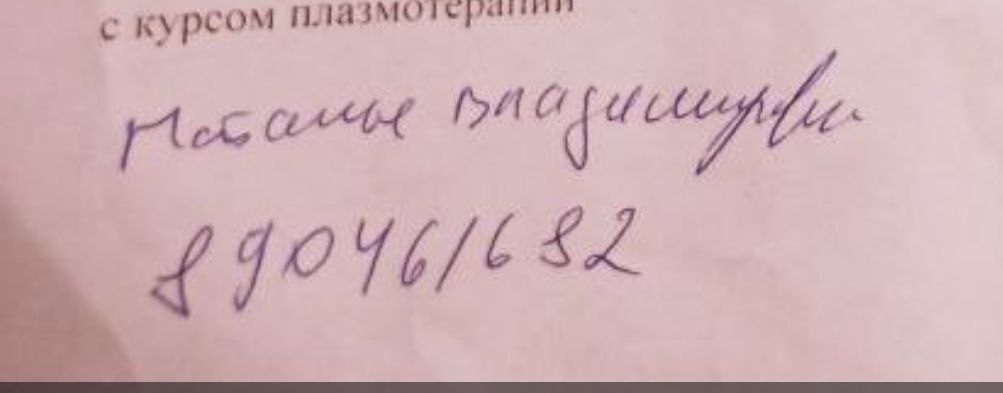 с курсом плазмотерапии
Наталье Владимировн
8904616892